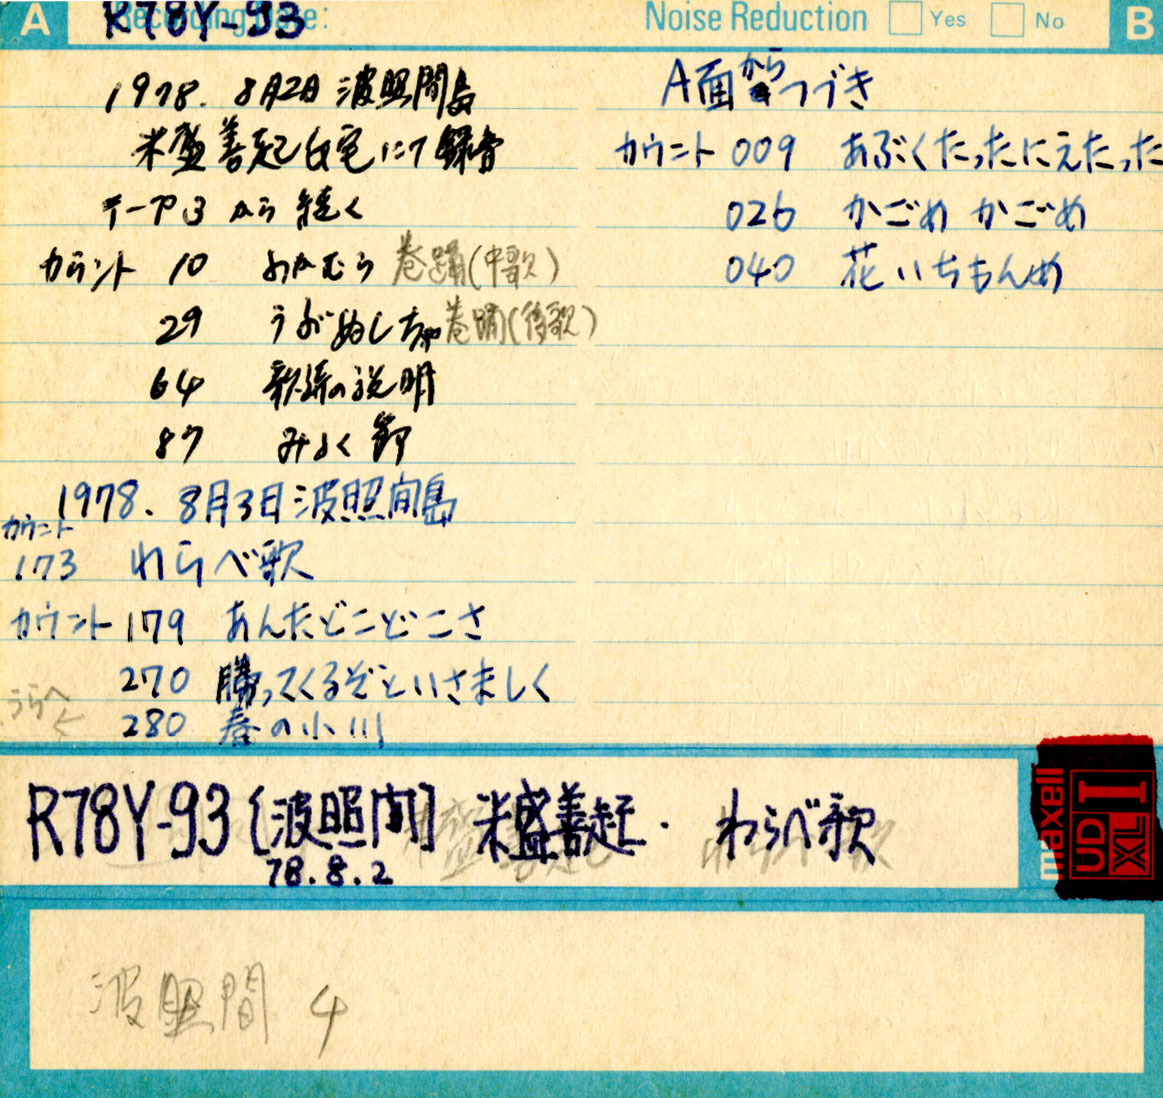 A
Recording Date:
R78Y-93
1978. 8月2日 波照間島
米盛善起自宅にて録音
テープ3 から 続く
カウント 10 巻踊(中歌)
29 うがぬしちゃ 巻踊(後歌)
64 歌詞の説明
87 みよく 節
1978. 8月3日 波照間島
カウント
173 わらべ歌
カウント 179 あんたどこどこさ
270 勝ってくるぞといさましく
うらへ
280 春の小川
Noise Reduction Yes No
B
A面からつづき
カウント 009 あぶくたったにえたった
026 かごめ かごめ
040 花いちもんめ
R78Y-93 [波照間] 米盛善起・ わらべ歌
78.8.2
maxell
UD
XL I
波照間 4